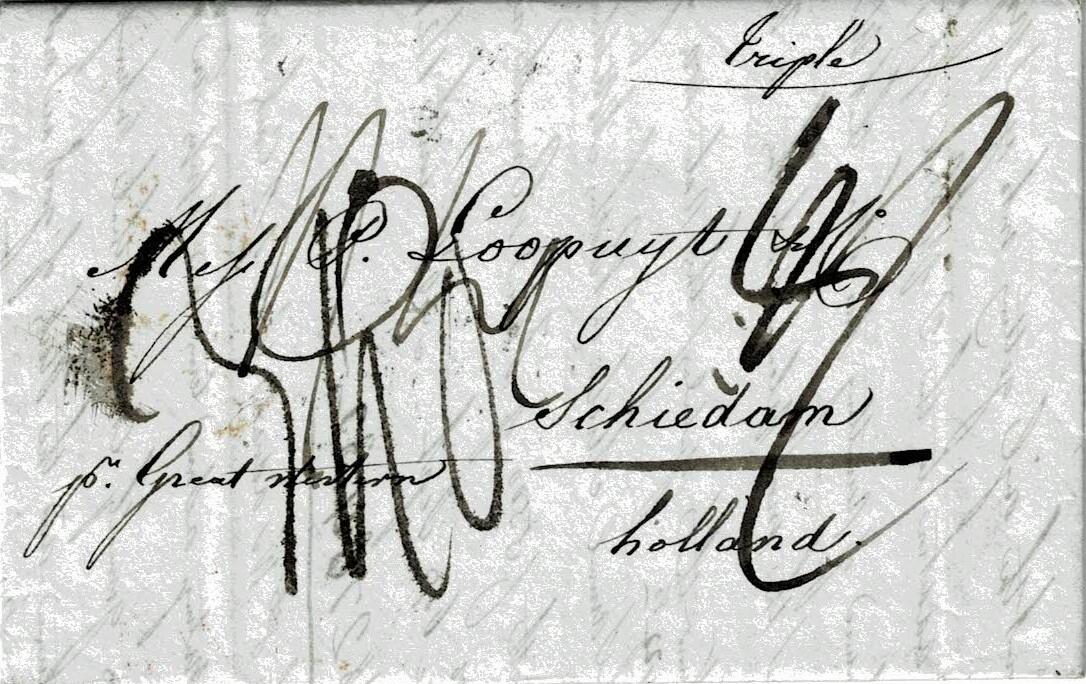 triple
Mess P. Loopuyt & Co.
Schiedam
pr. Great Western
holland.